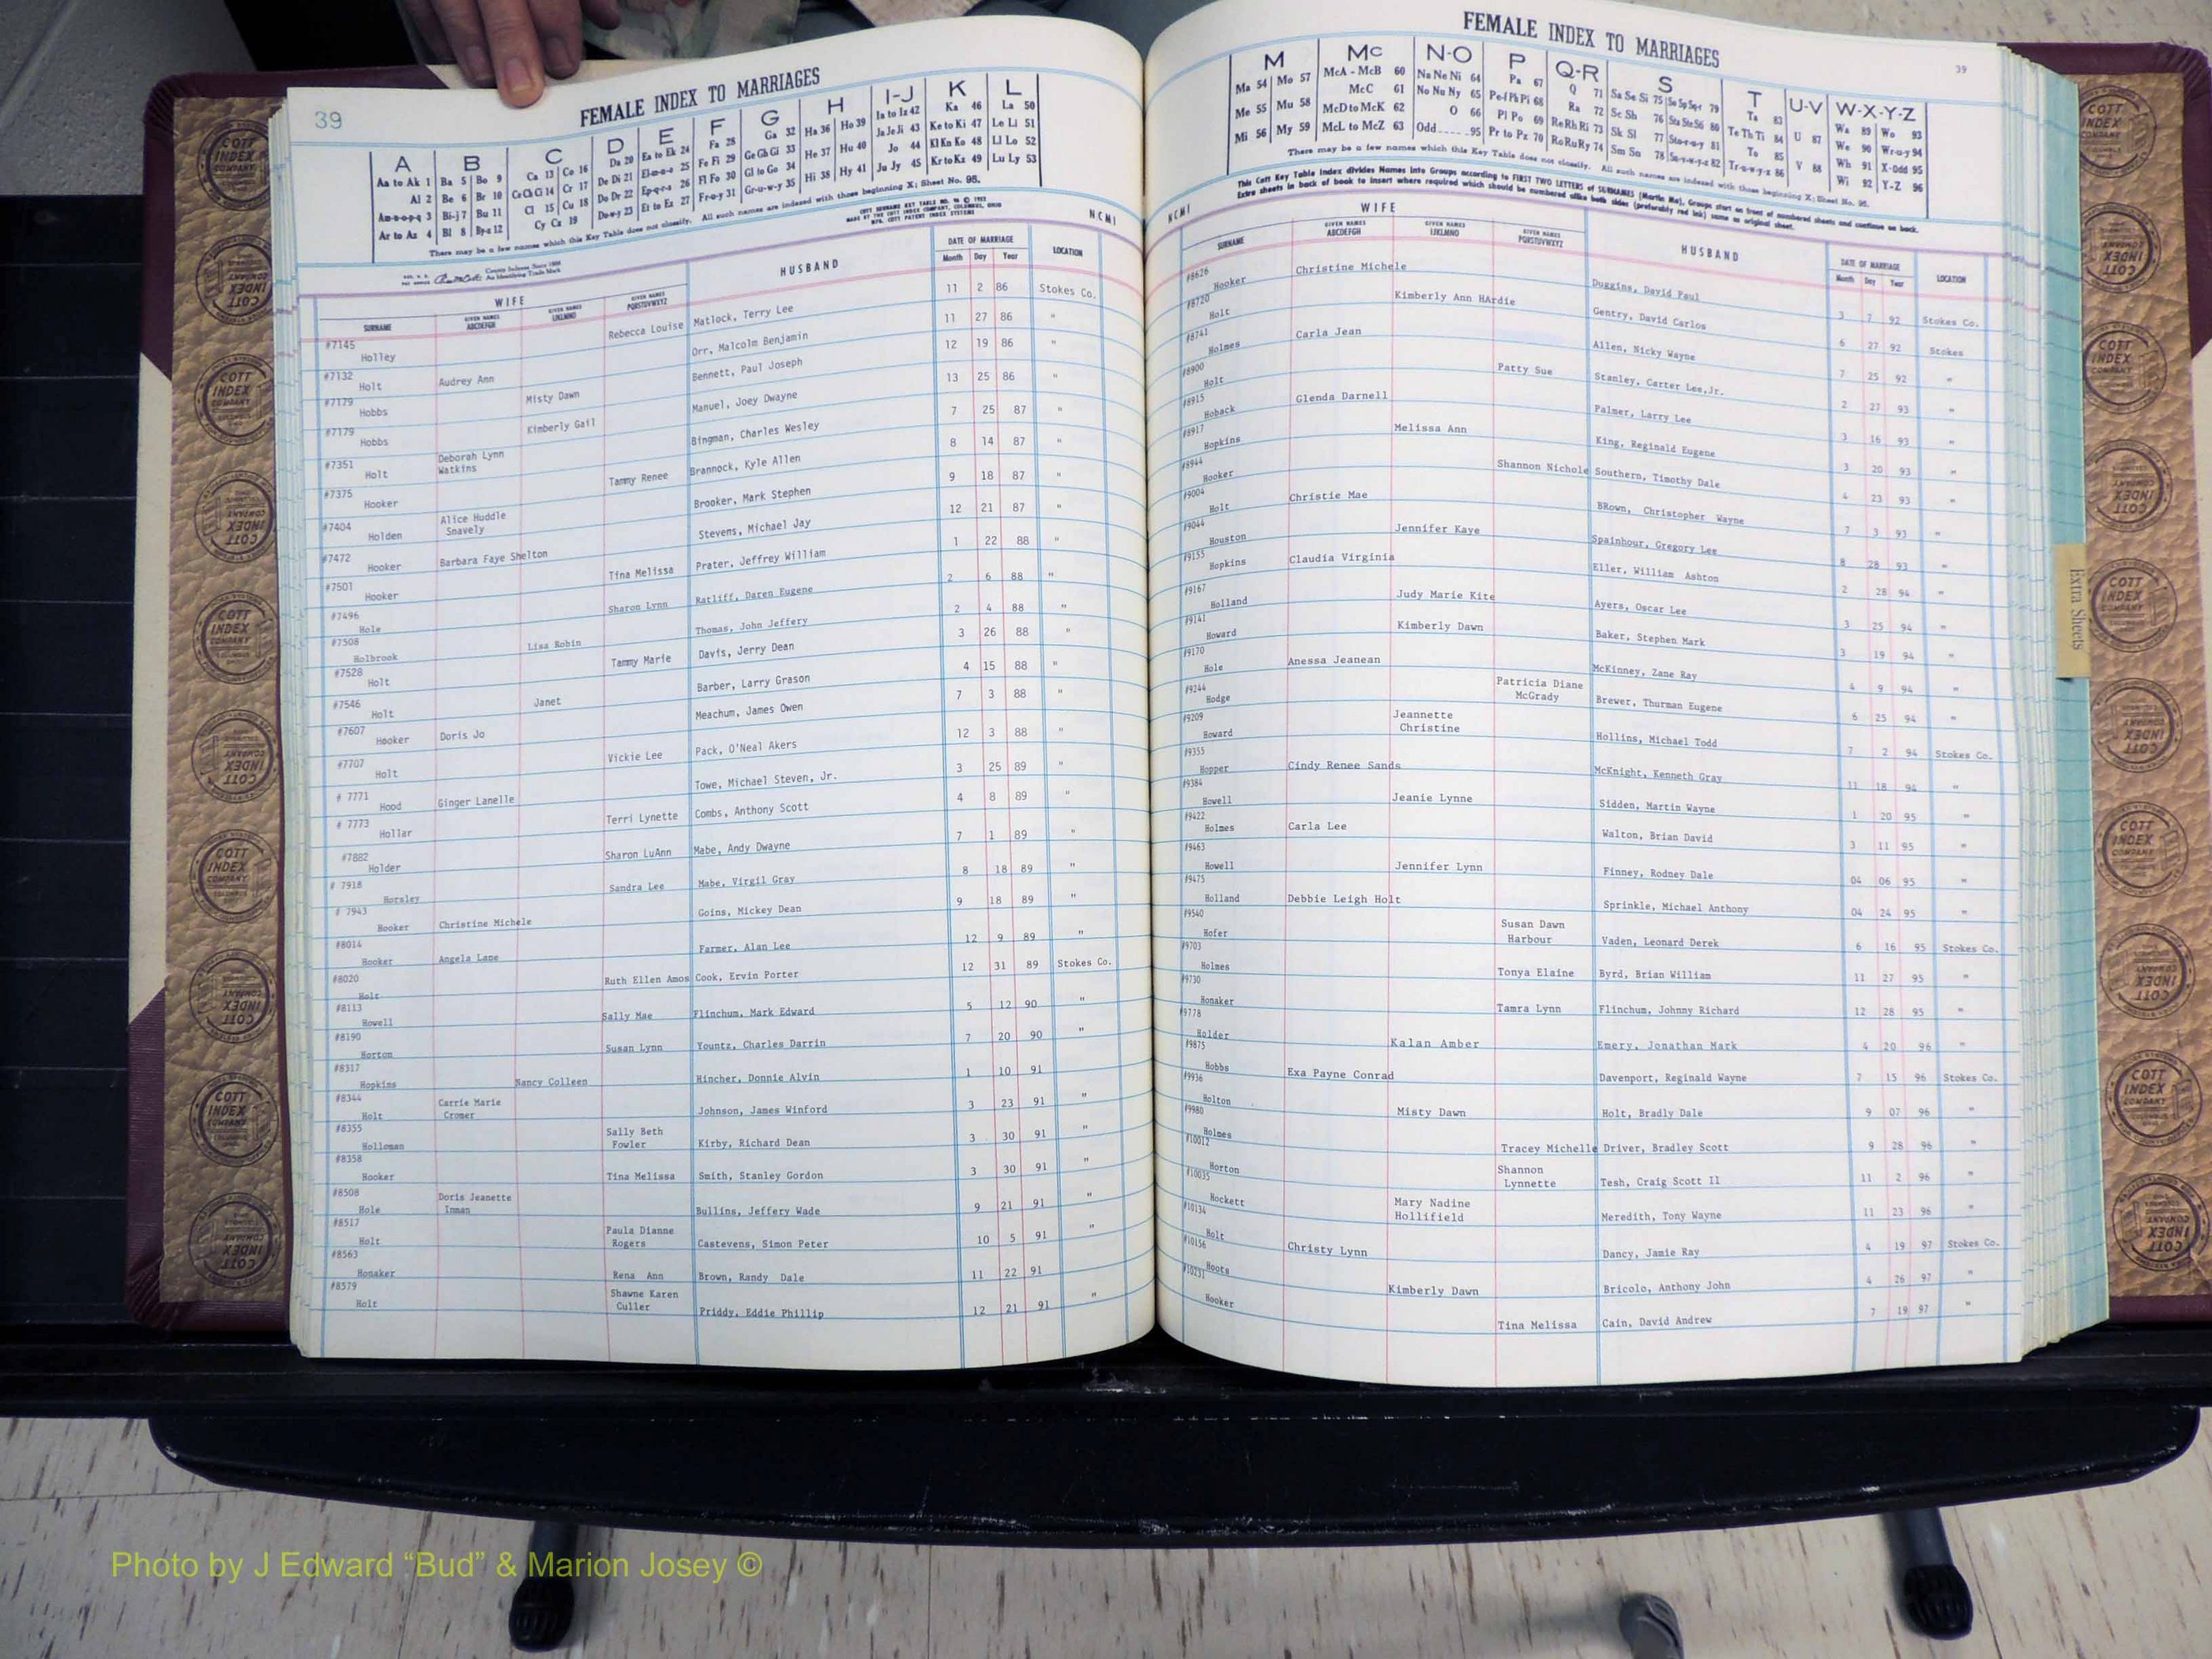 39
FEMALE INDEX TO MARRIAGES
A B C D E F G H I-J K L
Aa to Ak 1 Ba 5 Bo 9 Ca 13 Co 16 Da 20 Ea to Ek 24 Fa 28 Ga 32 Ha 36 Ho 39 Ia to Iz 42 Ka 46 La 50
Al 2 Be 6 Br 10 Ce Ch Ci 14 Cr 17 De Di 21 El-m-n-o 25 Fe Fi 29 Ge Gh Gi 33 He 37 Hu 40 Ja Je Ji 43 Ke to Ki 47 Le Li 51
Am-n-o-p-q 3 Bi-j 7 Bu 11 Cl 15 Cu 18 Do Dr 22 Ep-q-r-s 26 Fl Fo 30 Gl to Go 34 Hi 38 Hy 41 Jo 44 Kl Kn Ko 48 Ll Lo 52
Ar to Az 4 Bl 8 By-z 12 Cy Cz 19 Du-w-y 23 Et to Ez 27 Fr-o-y 31 Gr-u-w-y 35 Ju Jy 45 Kr to Kz 49 Lu Ly 53
There may be a few names which this Key Table does not classify. All such names are indexed with those beginning X; Sheet No. 95.
NCMI
WIFE HUSBAND DATE OF MARRIAGE LOCATION
SURNAME GIVEN NAMES ABCDEFGH GIVEN NAMES IJKLMNO GIVEN NAMES PQRSTUVWXYZ Month Day Year
#7145 Holley Rebecca Louise Matlock, Terry Lee 11 2 86 Stokes Co.
#7132 Holt Audrey Ann Orr, Malcolm Benjamin 11 27 86 "
#7179 Hobbs Misty Dawn Bennett, Paul Joseph 12 19 86 "
#7179 Hobbs Kimberly Gail Manuel, Joey Dwayne 13 25 86 "
#7351 Holt Deborah Lynn Watkins Bingman, Charles Wesley 7 25 87 "
#7375 Hooker Tammy Renee Brannock, Kyle Allen 8 14 87 "
#7404 Holden Alice Huddle Snavely Brooker, Mark Stephen 9 18 87 "
#7472 Hooker Barbara Faye Shelton Stevens, Michael Jay 12 21 87 "
#7501 Hooker Tina Melissa Prater, Jeffrey William 1 22 88 "
#7496 Hole Sharon Lynn Ratliff, Daren Eugene 2 6 88 "
#7508 Holbrook Lisa Robin Thomas, John Jeffery 2 4 88 "
#7528 Holt Tammy Marie Davis, Jerry Dean 3 26 88 "
#7546 Holt Janet Barber, Larry Grason 4 15 88 "
#7607 Hooker Doris Jo Meachum, James Owen 7 3 88 "
#7707 Holt Vickie Lee Pack, O'Neal Akers 12 3 88 "
# 7771 Hood Ginger Lanelle Towe, Michael Steven, Jr. 3 25 89 "
# 7773 Hollar Terri Lynette Combs, Anthony Scott 4 8 89 "
#7882 Holder Sharon LuAnn Mabe, Andy Dwayne 7 1 89 "
# 7918 Horsley Sandra Lee Mabe, Virgil Gray 8 18 89 "
# 7943 Hooker Christine Michele Goins, Mickey Dean 9 18 89 "
#8014 Hooker Angela Lane Farmer, Alan Lee 12 9 89 "
#8020 Holt Ruth Ellen Amos Cook, Ervin Porter 12 31 89 Stokes Co.
#8113 Howell Sally Mae Flinchum, Mark Edward 5 12 90 "
#8190 Horton Susan Lynn Yountz, Charles Darrin 7 20 90 "
#8317 Hopkins Nancy Colleen Hincher, Donnie Alvin 1 10 91
#8344 Holt Carrie Marie Cromer Johnson, James Winford 3 23 91 "
#8355 Holloman Sally Beth Fowler Kirby, Richard Dean 3 30 91 "
#8358 Hooker Tina Melissa Smith, Stanley Gordon 3 30 91 "
#8508 Hole Doris Jeanette Inman Bullins, Jeffery Wade 9 21 91 "
#8517 Holt Paula Dianne Rogers Castevens, Simon Peter 10 5 91 "
#8563 Honaker Rena Ann Brown, Randy Dale 11 22 91
#8579 Holt Shawne Karen Culler Priddy, Eddie Phillip 12 21 91 "
FEMALE INDEX TO MARRIAGES
39
M Mc N-O P Q-R S T U-V W-X-Y-Z
Ma 54 Mo 57 McA - McB 60 Na Ne Ni 64 Pa 67 Q 71 Sa Se Si 75 So Sp Sq-r 79 Ta 83 U 87 Wa 89 Wo 93
Me 55 Mu 58 McC 61 No Nu Ny 65 Pe-f Ph Pi 68 Ra 72 Sc Sh 76 Sta Ste Sti 80 Te Th Ti 84 V 88 We 90 Wr-u-y 94
Mi 56 My 59 McD to McK 62 O 66 Pl Po 69 Re Rh Ri 73 Sk Sl 77 Sto-r-u-y 81 To 85 Wh 91 X-Odd 95
McL to McZ 63 Odd 95 Pr to Pz 70 Ro Ru Ry 74 Sm Sn 78 Su-v-w-y-z 82 Tr-u-w-y-z 86 Wi 92 Y-Z 96
There may be a few names which this Key Table does not classify. All such names are indexed with those beginning X; Sheet No. 95.
This Cott Key Table Index divides Names into Groups according to FIRST TWO LETTERS of SURNAMES (Martin Ma), Groups start on front of numbered sheets and continue on back.
Extra sheets in back of book to insert where required which should be numbered alike both sides (preferably red ink) same as original sheet.
NCMI
WIFE HUSBAND DATE OF MARRIAGE LOCATION
SURNAME GIVEN NAMES ABCDEFGH GIVEN NAMES IJKLMNO GIVEN NAMES PQRSTUVWXYZ Month Day Year
#8626 Hooker Christine Michele Duggins, David Paul 3 7 92 Stokes Co.
#8720 Holt Kimberly Ann HArdie Gentry, David Carlos 6 27 92 Stokes
#8741 Holmes Carla Jean Allen, Nicky Wayne 7 25 92 "
#8900 Holt Patty Sue Stanley, Carter Lee,Jr. 2 27 93 "
#8915 Hoback Glenda Darnell Palmer, Larry Lee 3 16 93 "
#8917 Hopkins Melissa Ann King, Reginald Eugene 3 20 93 "
#8944 Hooker Shannon Nichole Southern, Timothy Dale 4 23 93 "
#9004 Holt Christie Mae BRown, Christopher Wayne 7 3 93 "
#9044 Houston Jennifer Kaye Spainhour, Gregory Lee 8 28 93 "
#9155 Hopkins Claudia Virginia Eller, William Ashton 2 28 94 "
#9167 Holland Judy Marie Kite Ayers, Oscar Lee 3 25 94 "
#9141 Howard Kimberly Dawn Baker, Stephen Mark 3 19 94 "
#9170 Hole Anessa Jeanean McKinney, Zane Ray 4 9 94 "
#9244 Hodge Patricia Diane McGrady Brewer, Thurman Eugene 6 25 94 "
#9209 Howard Jeannette Christine Hollins, Michael Todd 7 2 94 Stokes Co.
#9355 Hopper Cindy Renee Sands McKnight, Kenneth Gray 11 18 94 "
#9384 Howell Jeanie Lynne Sidden, Martin Wayne 1 20 95 "
#9422 Holmes Carla Lee Walton, Brian David 3 11 95 "
#9463 Howell Jennifer Lynn Finney, Rodney Dale 04 06 95 "
#9475 Holland Debbie Leigh Holt Sprinkle, Michael Anthony 04 24 95 "
#9540 Hofer Susan Dawn Harbour Vaden, Leonard Derek 6 16 95 Stokes Co.
#9703 Holmes Tonya Elaine Byrd, Brian William 11 27 95 "
#9730 Honaker Tamra Lynn Flinchum, Johnny Richard 12 28 95 "
#9778 Holder Kalan Amber Emery, Jonathan Mark 4 20 96 "
#9875 Hobbs Exa Payne Conrad Davenport, Reginald Wayne 7 15 96 Stokes Co.
#9936 Holton Misty Dawn Holt, Bradly Dale 9 07 96 "
#9980 Holmes Tracey Michelle Driver, Bradley Scott 9 28 96 "
#10012 Horton Shannon Lynnette Tesh, Craig Scott II 11 2 96 "
#10035 Hockett Mary Nadine Hollifield Meredith, Tony Wayne 11 23 96 "
#10134 Holt Christy Lynn Dancy, Jamie Ray 4 19 97 Stokes Co.
#10156 Hoots Kimberly Dawn Bricolo, Anthony John 4 26 97 "
#10231 Hooker Tina Melissa Cain, David Andrew 7 19 97 "
Extra Sheets
COTT INDEX COMPANY
Photo by J Edward “Bud” & Marion Josey ©